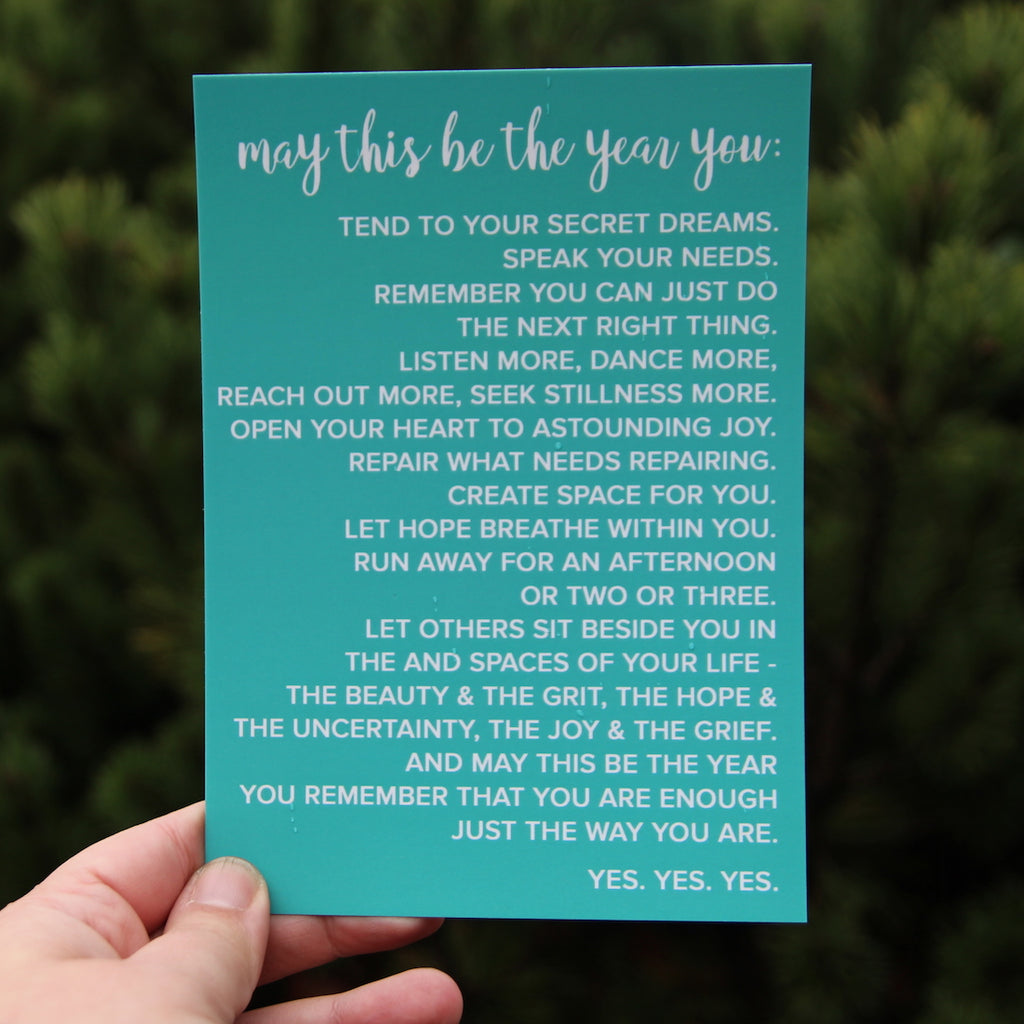 may this be the year you:
TEND TO YOUR SECRET DREAMS.
SPEAK YOUR NEEDS.
REMEMBER YOU CAN JUST DO
THE NEXT RIGHT THING.
LISTEN MORE, DANCE MORE,
REACH OUT MORE, SEEK STILLNESS MORE.
OPEN YOUR HEART TO ASTOUNDING JOY.
REPAIR WHAT NEEDS REPAIRING.
CREATE SPACE FOR YOU.
LET HOPE BREATHE WITHIN YOU.
RUN AWAY FOR AN AFTERNOON
OR TWO OR THREE.
LET OTHERS SIT BESIDE YOU IN
THE AND SPACES OF YOUR LIFE -
THE BEAUTY & THE GRIT, THE HOPE &
THE UNCERTAINTY, THE JOY & THE GRIEF.
AND MAY THIS BE THE YEAR
YOU REMEMBER THAT YOU ARE ENOUGH
JUST THE WAY YOU ARE.
YES. YES. YES.